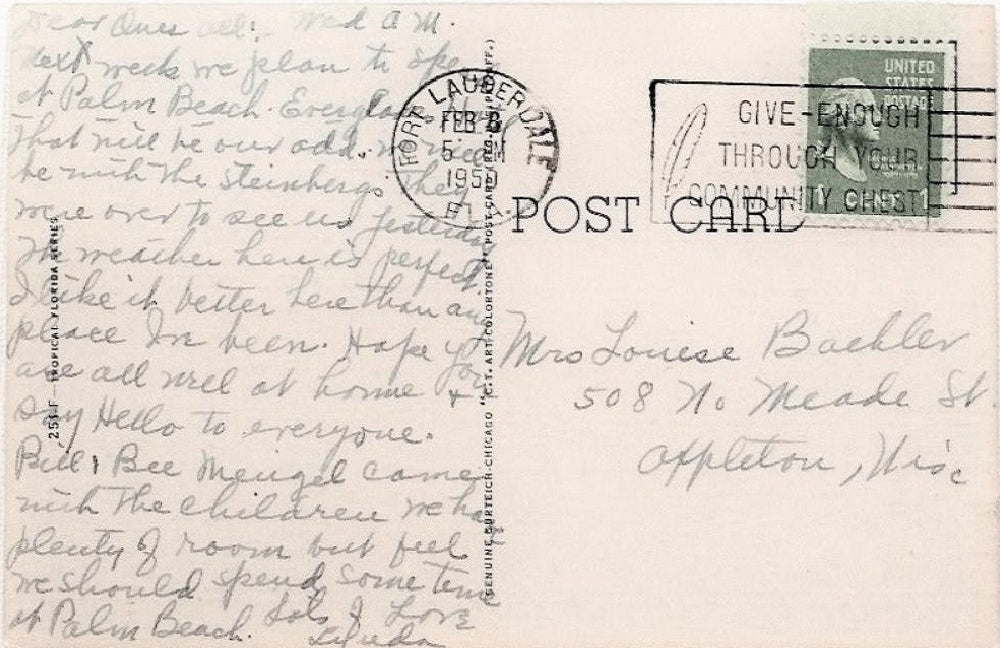 Dear Ones all: Wed A M.
Next week we plan to spend
at Palm Beach. Everglades Hotel
That will be our add. We will
be with the Steinbergs. They
were over to see us yesterday
The weather here is perfect.
I like it better here than any
place I've been. Hope you
are all well at home &
say Hello to everyone.
Bill & Bee Mengel came
with the children we have
plenty of room but feel
we should spend some time
at Palm Beach. Lots of Love
FORT LAUDERDALE
FEB 8
5 PM
1950
FLA.
GIVE-ENOUGH
THROUGH YOUR
COMMUNITY CHEST
UNITED
STATES
POSTAGE
1 CENT
POST CARD
Mrs Louise Buchler
508 No Meade St
Appleton, Wisc
TROPICAL FLORIDA SERIES
GENUINE CURTEICH-CHICAGO "C.T. ART-COLORTONE" POST CARD (REG. U.S. PAT. OFF.)